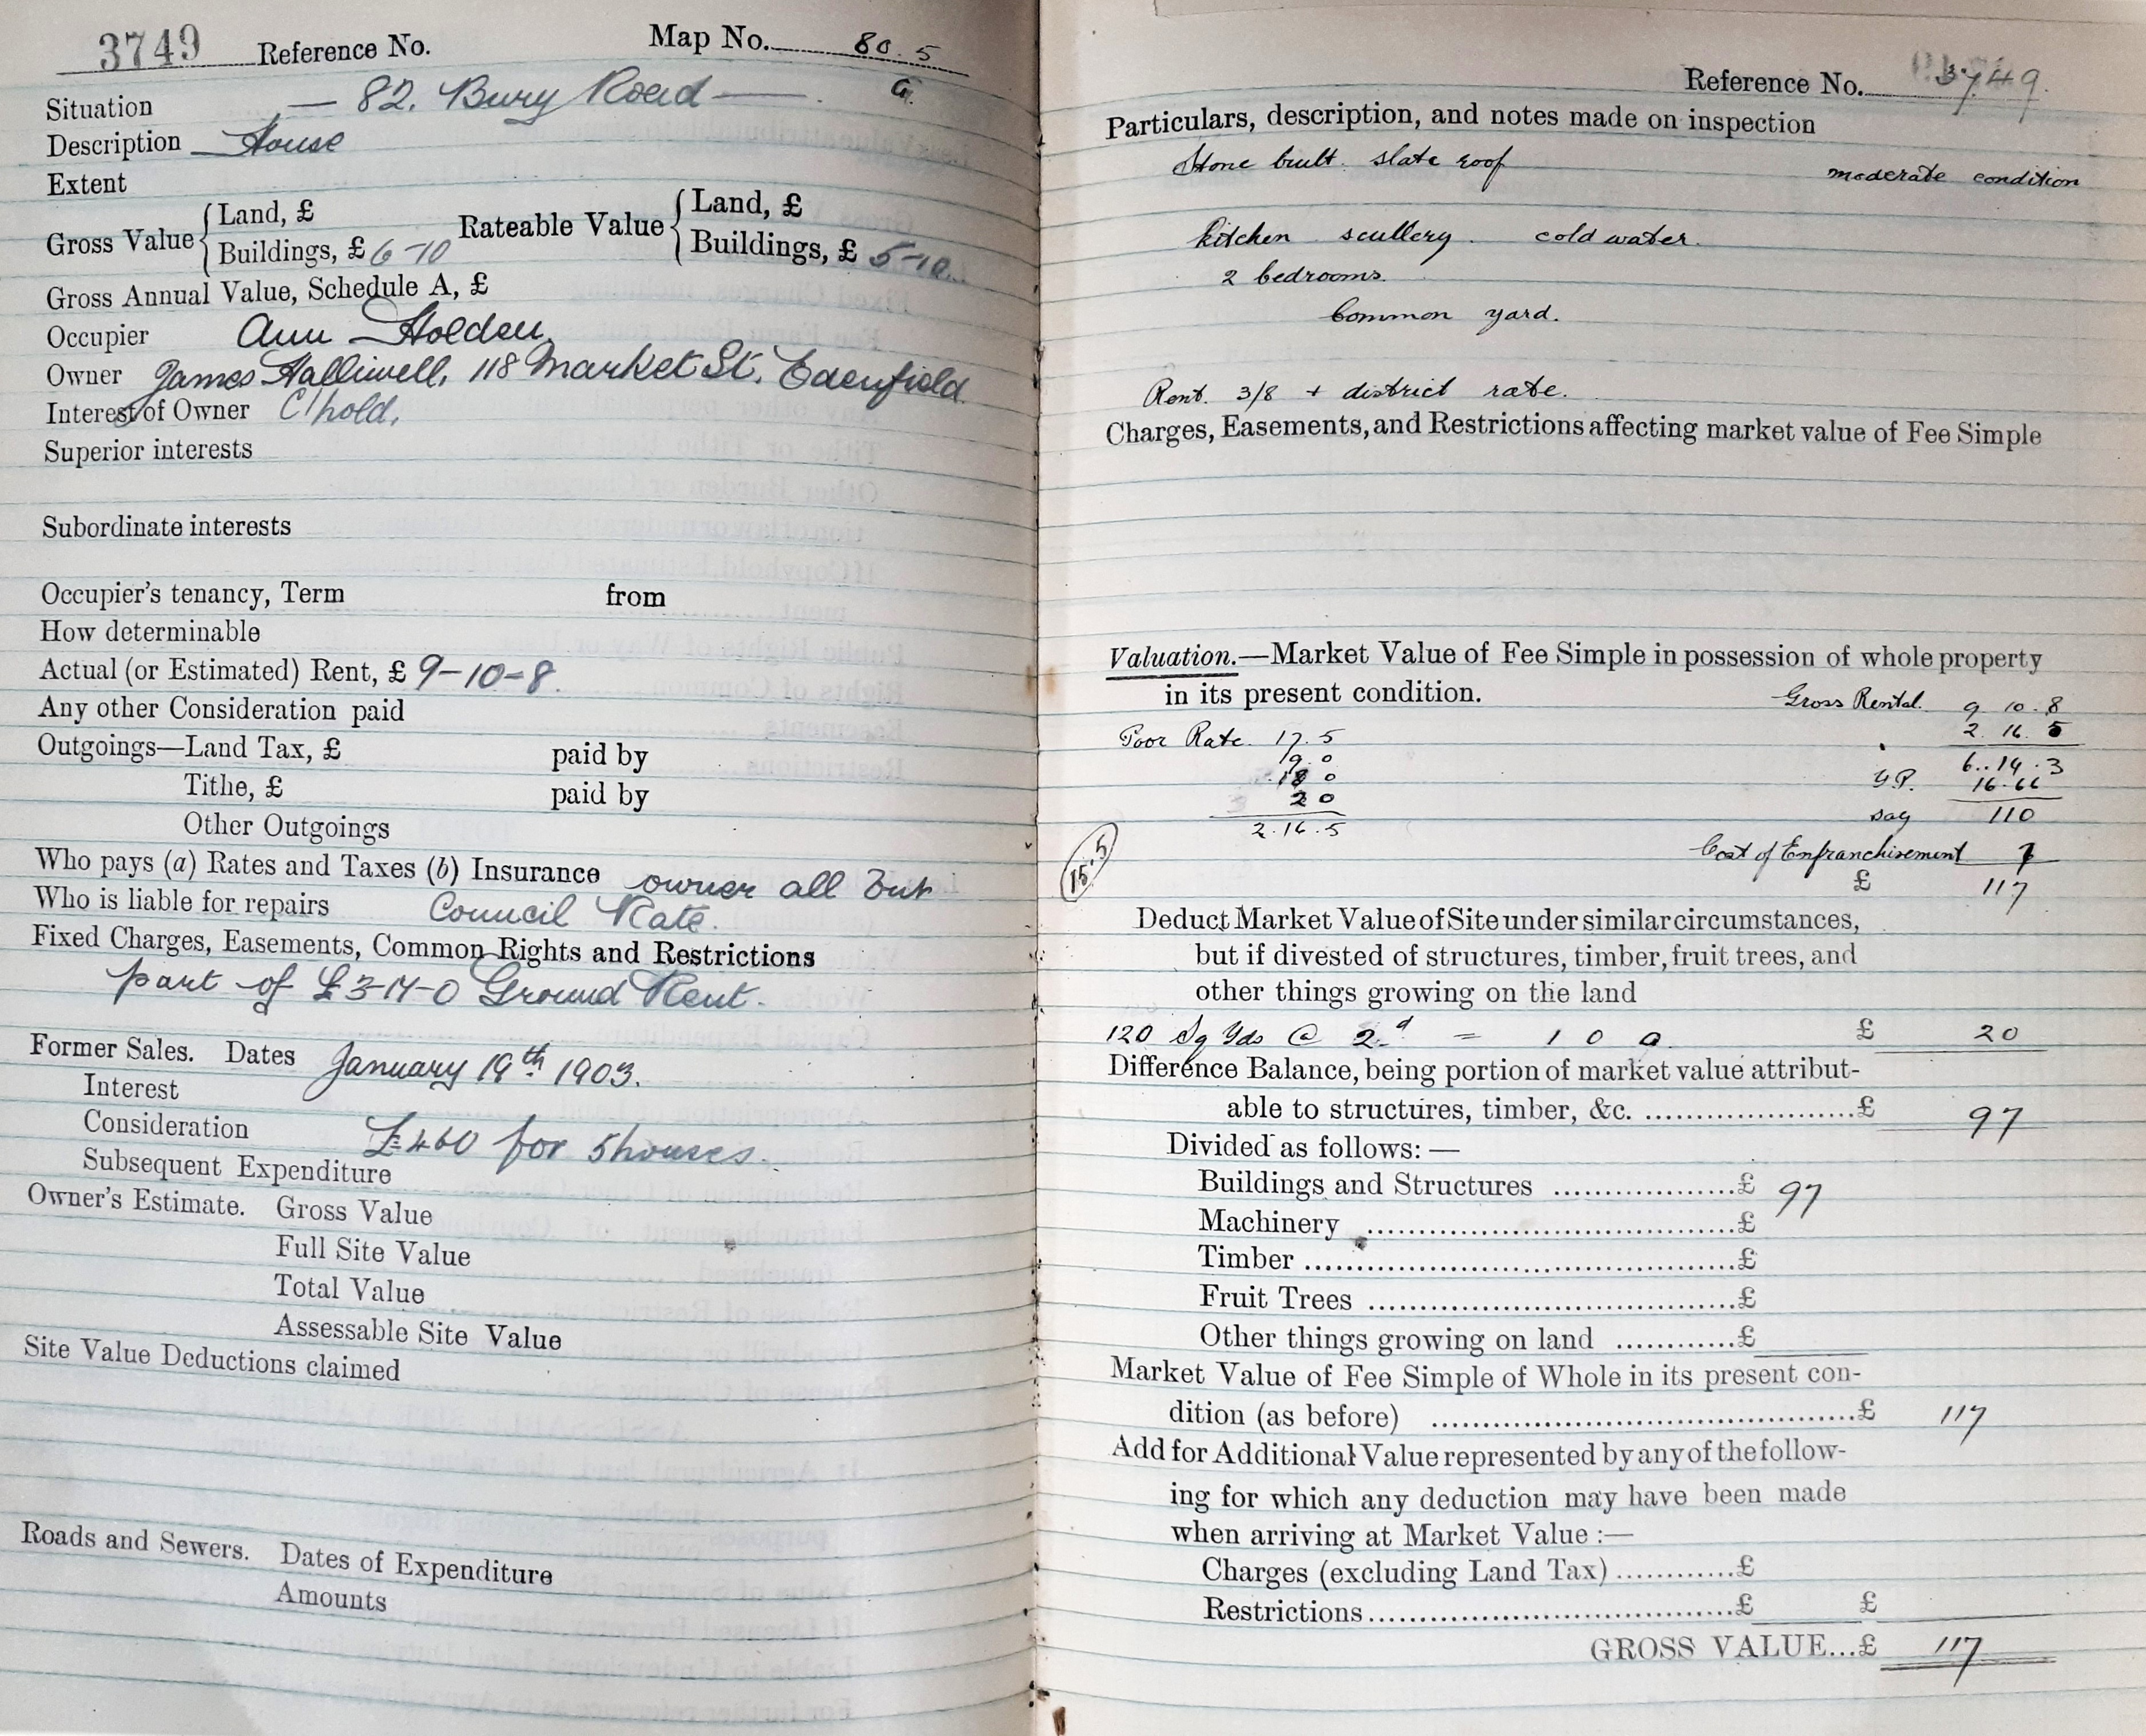 3749 Reference No. Map No. 80.5
G.
Situation — 82, Bury Road —
Description House
Extent
Gross Value { Land, £ Rateable Value { Land, £
Buildings, £ 6-10 Buildings, £ 5-10
Gross Annual Value, Schedule A, £
Occupier Ann Holden
Owner James Halliwell, 118 Market St. Edenfield
Interest of Owner C/hold,
Superior interests
Subordinate interests
Occupier's tenancy, Term from
How determinable
Actual (or Estimated) Rent, £ 9-10-8.
Any other Consideration paid
Outgoings—Land Tax, £ paid by
Tithe, £ paid by
Other Outgoings
Who pays (a) Rates and Taxes (b) Insurance owner all but
Who is liable for repairs Council Rate.
Fixed Charges, Easements, Common Rights and Restrictions
part of Ground Rent.
Former Sales. Dates January 19th 1903.
Interest
Consideration £460 for 5 houses.
Subsequent Expenditure
Owner's Estimate. Gross Value
Full Site Value
Total Value
Assessable Site Value
Site Value Deductions claimed
Roads and Sewers. Dates of Expenditure
Amounts
Reference No. 3749.
Particulars, description, and notes made on inspection
Stone built. slate roof moderate condition
kitchen scullery. cold water.
2 bedrooms.
Common yard.
Rent. 3/8 + district rate.
Charges, Easements, and Restrictions affecting market value of Fee Simple
Valuation.—Market Value of Fee Simple in possession of whole property
in its present condition. Gross Rental. 9 10.8
Poor Rate. 17.5 2.16.5
19.0 6.14.3
18 0 Y.P. 16.66
20 say 110
2.16.5
15.5 Cost of Enfranchisement 7
£ 117
Deduct Market Value of Site under similar circumstances,
but if divested of structures, timber, fruit trees, and
other things growing on the land
120 Sq Yds @ 2d = 1 0 0. £ 20
Difference Balance, being portion of market value attribut-
able to structures, timber, &c. ......................£ 97
Divided as follows:—
Buildings and Structures ..................£ 97
Machinery ....................................£
Timber ..........................................£
Fruit Trees ....................................£
Other things growing on land ............£
Market Value of Fee Simple of Whole in its present con-
dition (as before) ..........................................£ 117
Add for Additional Value represented by any of the follow-
ing for which any deduction may have been made
when arriving at Market Value :—
Charges (excluding Land Tax) ............£
Restrictions ....................................£ £
GROSS VALUE...£ 117